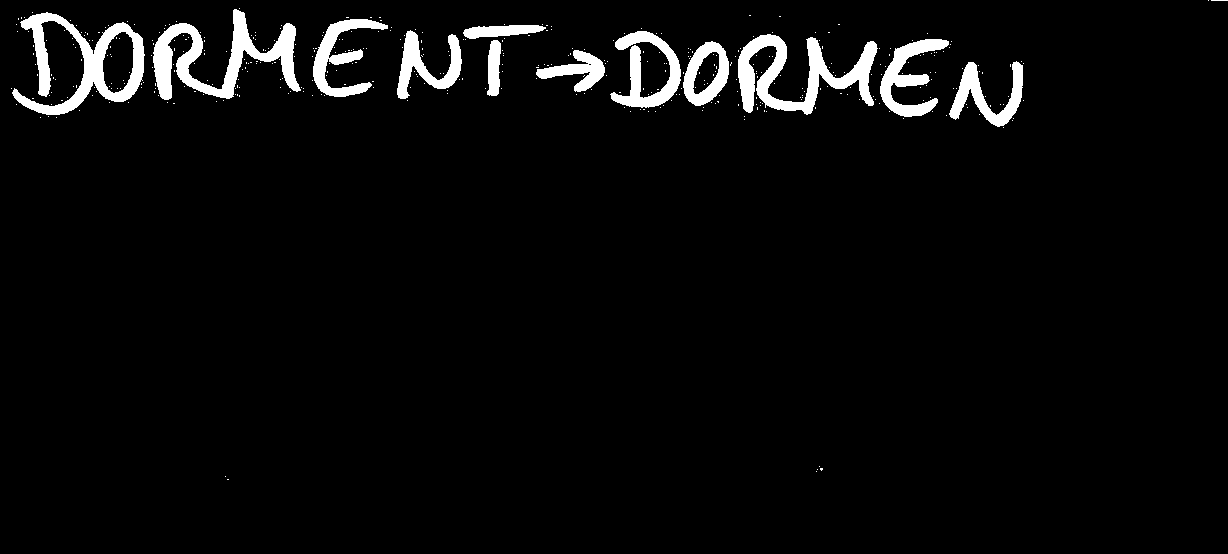 DORMENT → DORMEN